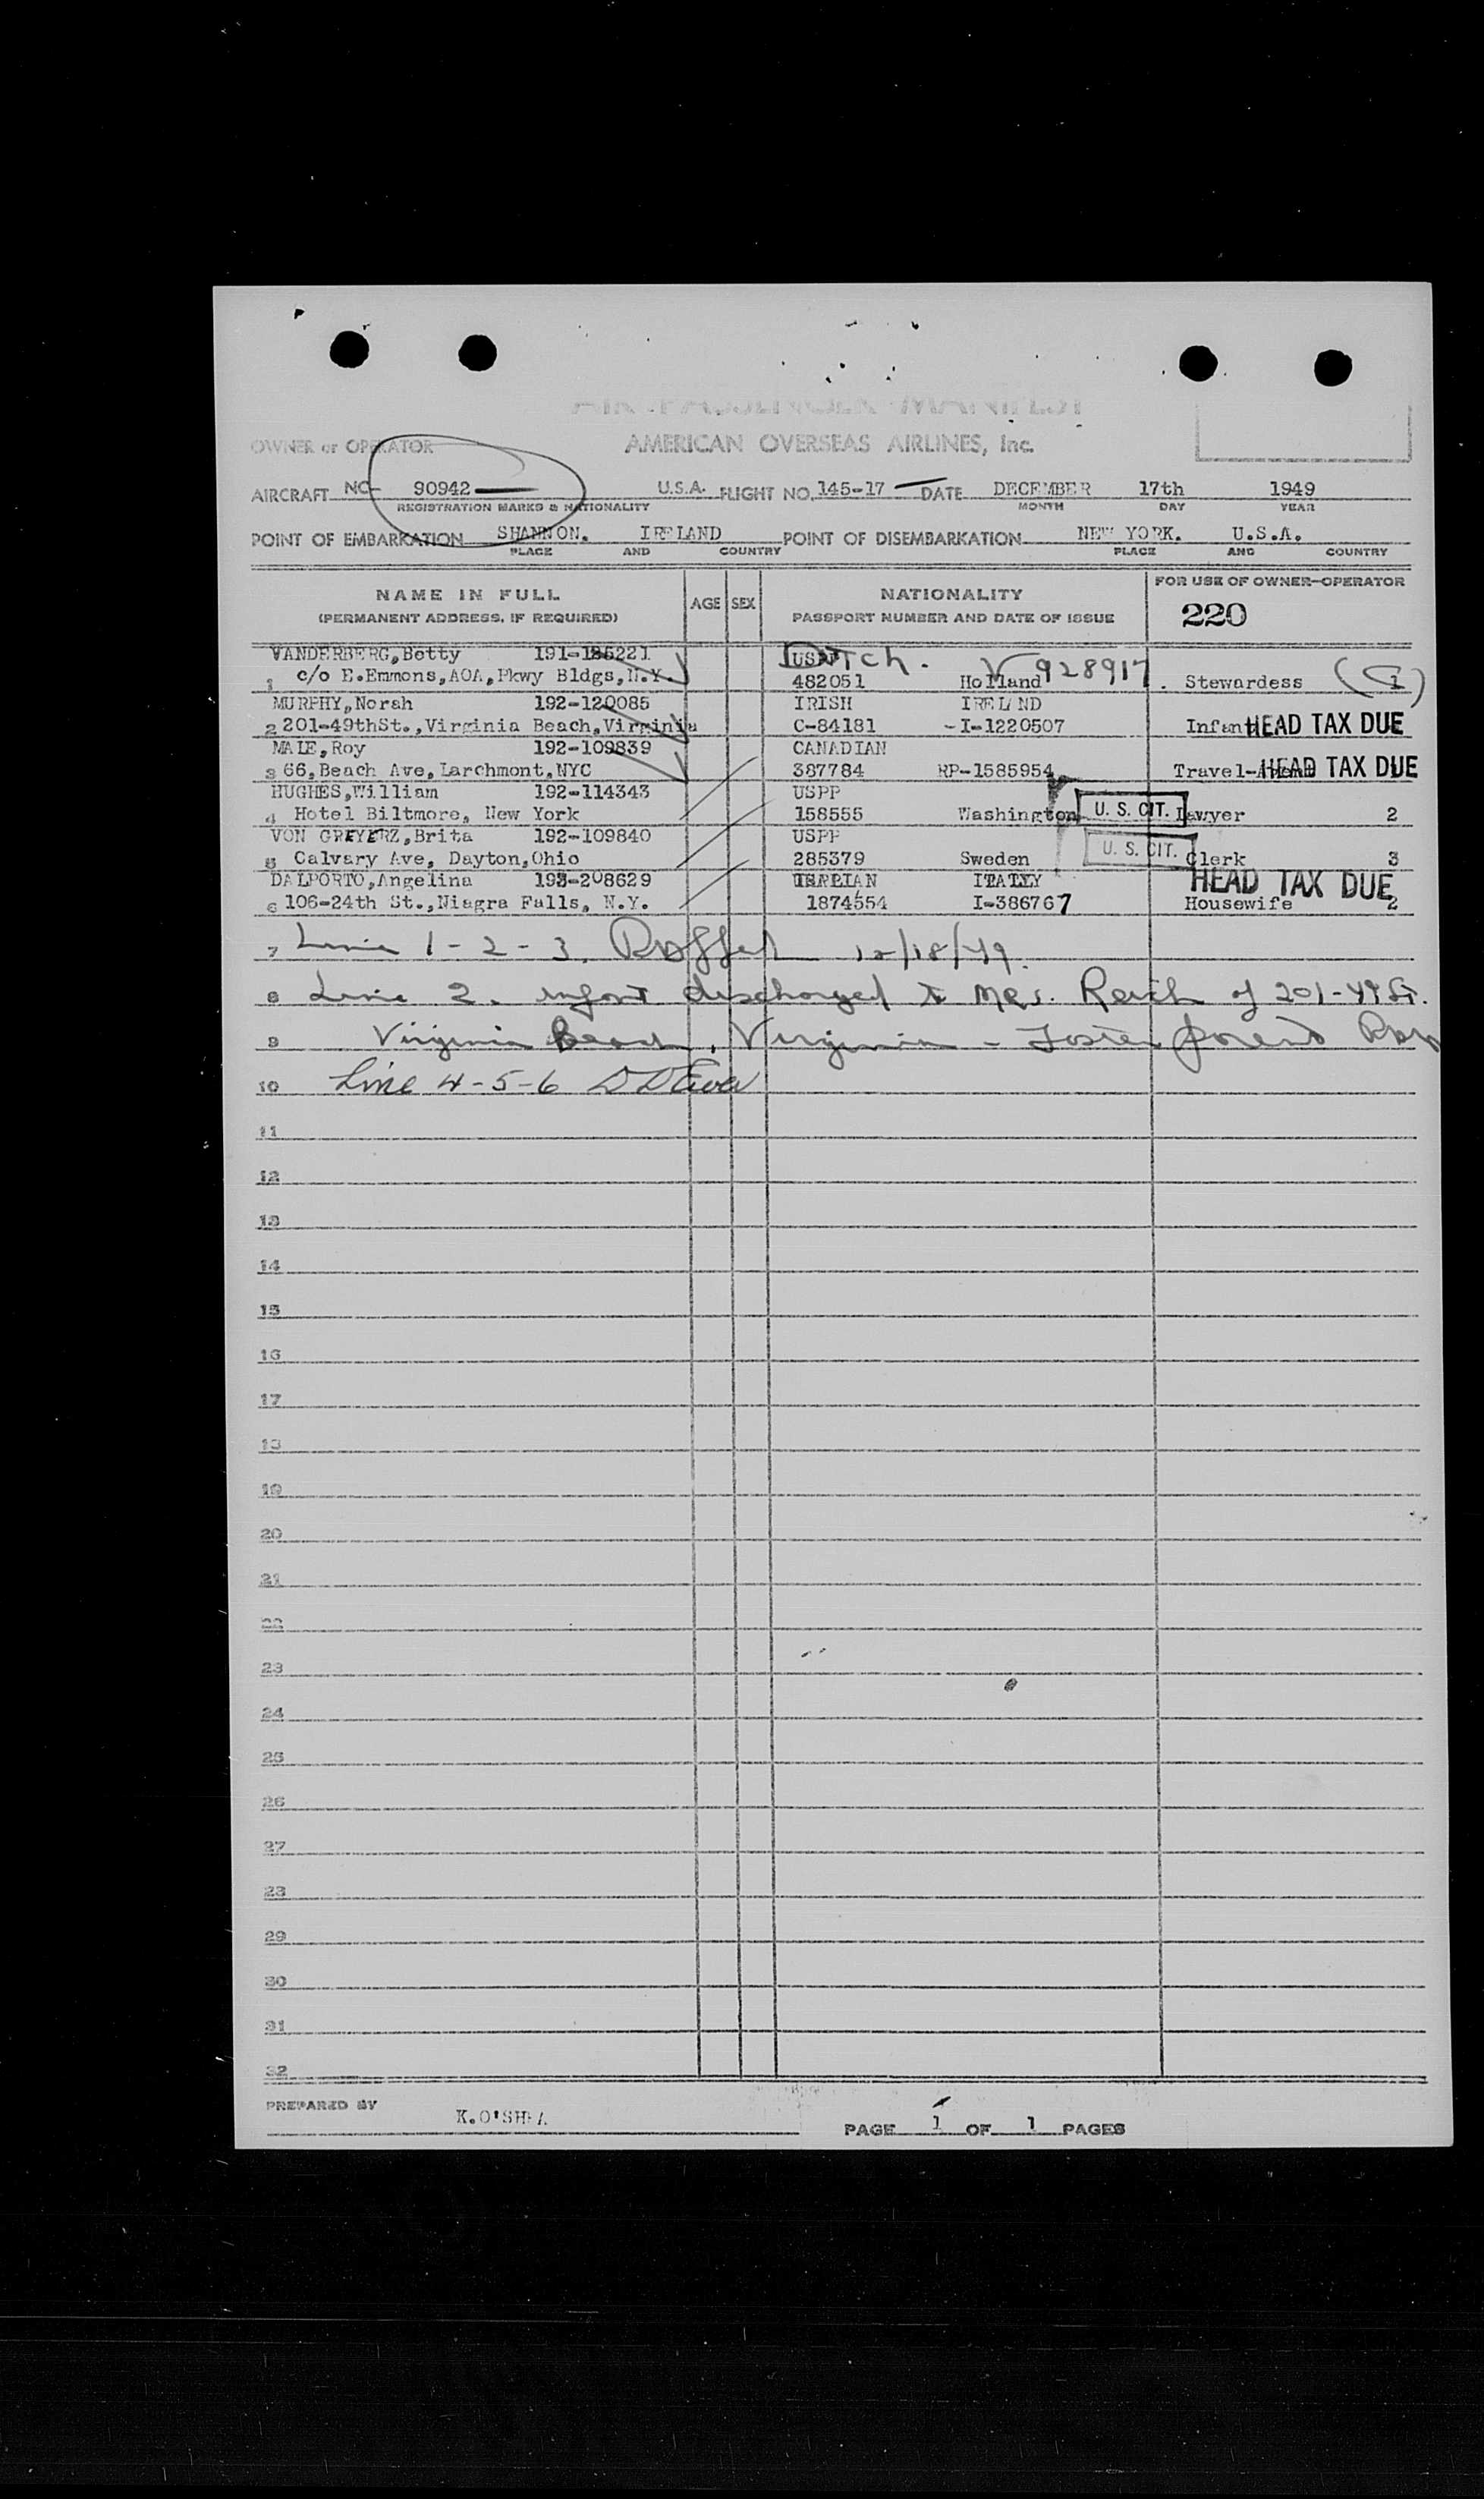 AIR PASSENGER MANIFEST
OWNER or OPERATOR AMERICAN OVERSEAS AIRLINES, Inc.
AIRCRAFT NC- 90942 U.S.A. FLIGHT NO. 145-17 DATE DECEMBER 17th 1949
REGISTRATION MARKS & NATIONALITY MONTH DAY YEAR
POINT OF EMBARKATION SHANNON. IRELAND POINT OF DISEMBARKATION NEW YORK. U.S.A.
PLACE AND COUNTRY PLACE AND COUNTRY
NAME IN FULL AGE SEX NATIONALITY FOR USE OF OWNER-OPERATOR
(PERMANENT ADDRESS, IF REQUIRED) PASSPORT NUMBER AND DATE OF ISSUE 220
VANDERBERG,Betty 191-186221 Dutch.
1 c/o E.Emmons,AOA,Pkwy Bldgs,N.Y. 482051 Holland V928917. Stewardess
MURPHY,Norah 192-120085 IRISH IRELAND
2 201-49thSt.,Virginia Beach,Virginia C-84181 -I-1220507 Infant HEAD TAX DUE
MALE,Roy 192-109839 CANADIAN
3 66,Beach Ave,Larchmont,NYC 387784 RP-1585954 Travel- HEAD TAX DUE
HUGHES,William 192-114343 USPP
4 Hotel Biltmore, New York 158555 Washington U. S. CIT. Lawyer 2
VON GREYERZ,Brita 192-109840 USPP
5 Calvary Ave, Dayton,Ohio 285379 Sweden U. S. CIT. Clerk 3
DALPORTO,Angelina 193-208629 ITALIAN ITALY HEAD TAX DUE
6 106-24th St.,Niagra Falls, N.Y. 1874554 I-386767 Housewife 2
7 Line 1-2-3. 12/18/49.
8 Line 2. infant discharged to Mrs. Reich of 201-49 St.
9 Virginia Beach, Virginia - Foster parent
10 Line 4-5-6
11
12
13
14
15
16
17
18
19
20
21
22
23
24
25
26
27
28
29
30
31
32
PREPARED BY K.O'SHEA PAGE 1 OF 1 PAGES